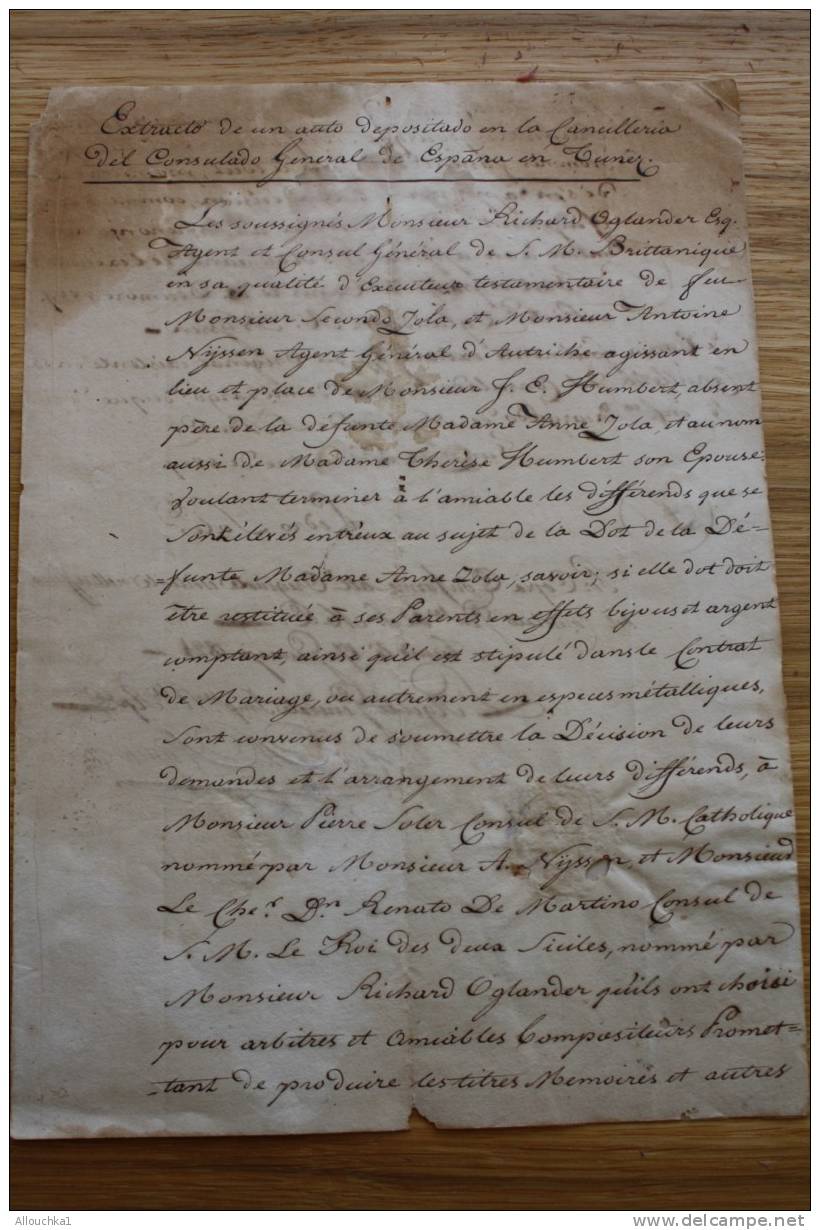 Extracto de un auto depositado en la Cancilleria
del Consulado General de España en Tunez.
Les soussignés Monsieur Richard Oglander Esq.
Agent et Consul Général de S. M. Brittanique
en sa qualité d'Executeur testamentaire de feu
Monsieur Secondo Zola, et Monsieur Antoine
Nijssen Agent Général d'Autriche agissant en
lieu et place de Monsieur J. E. Humbert, absent
père de la défunte Madame Anne Zola, et au nom
aussi de Madame Therèse Humbert son Epouse.
Voulant terminer à l'amiable les différends que se
sont élevés entr'eux au sujet de la Dot de la Dé=
=funte Madame Anne Zola, savoir; si elle dot doit
être restituée à ses Parents en effets bijous et argent
comptant, ainsi qu'il est stipulé dans le Contrat
de Mariage, ou autrement en especes métalliques,
Sont convenus de soumettre la Décision de leurs
demandes et l'arrangement de leurs différends, à
Monsieur Pierre Soler Consul de S. M. Catholique
nommé par Monsieur A. Nijssen, et Monsieur
Le Cher. Dn. Renato De Martino Consul de
S. M. Le Roi des deux Siciles, nommé par
Monsieur Richard Oglander qu'ils ont choisi
pour arbitres et Amiables Compositeurs Promet=
=tant de produire les titres Memoires et autres
Allouchka1
www.delcampe.net